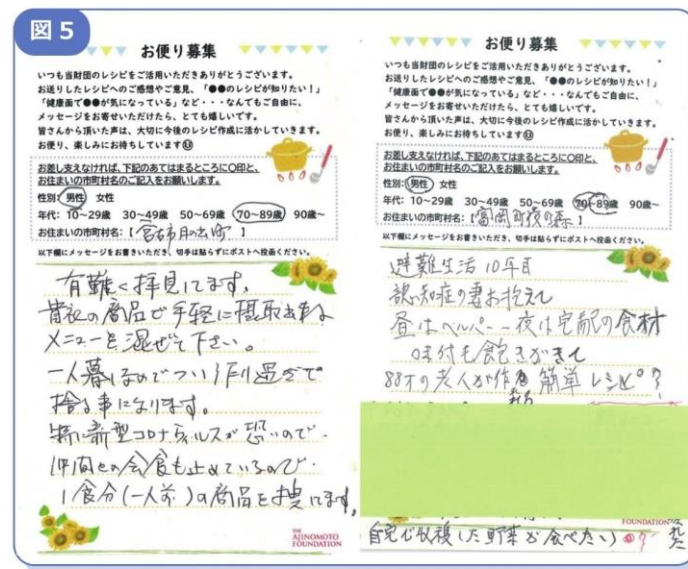 図5
お便り募集
いつも当財団のレシピをご活用いただきありがとうございます。
お送りしたレシピへのご感想やご意見、「●●のレシピが知りたい！」
「健康面で●●が気になっている」など・・・なんでもご自由に、
メッセージをお寄せいただけたら、とても嬉しいです。
皆さんから頂いた声は、大切に今後のレシピ作成に活かしていきます。
お便り、楽しみにお待ちしています
お差し支えなければ、下記のあてはまるところに○印と、
お住まいの市町村名のご記入をお願いします。
性別: 男性 女性
年代: 10~29歳 30~49歳 50~69歳 70~89歳 90歳~
お住まいの市町村名:【 】
以下欄にメッセージをお書きいただき、切手は貼らずにポストへ投函ください。
有難く拝見してます。
の商品で手軽に摂取出来る
メニューを混ぜて下さい。
一人暮しなのでつい作り過ぎて
捨る事になります。
特に新型コロナウィルスが恐いので
仲間との会食も止めているので
1食分(一人前)の商品を捜してます。
THE AJINOMOTO FOUNDATION
お便り募集
いつも当財団のレシピをご活用いただきありがとうございます。
お送りしたレシピへのご感想やご意見、「●●のレシピが知りたい！」
「健康面で●●が気になっている」など・・・なんでもご自由に、
メッセージをお寄せいただけたら、とても嬉しいです。
皆さんから頂いた声は、大切に今後のレシピ作成に活かしていきます。
お便り、楽しみにお待ちしています
お差し支えなければ、下記のあてはまるところに○印と、
お住まいの市町村名のご記入をお願いします。
性別: 男性 女性
年代: 10~29歳 30~49歳 50~69歳 70~89歳 90歳~
お住まいの市町村名:【富岡町夜の森】
以下欄にメッセージをお書きいただき、切手は貼らずにポストへ投函ください。
避難生活10年目
認知症の妻お抱えて
昼はヘルパー 夜は宅配の食材
味付も飽きがきて
88才の老人が作る 簡単レシピ?
FOUNDATION
自宅で収穫した野菜が食べたい